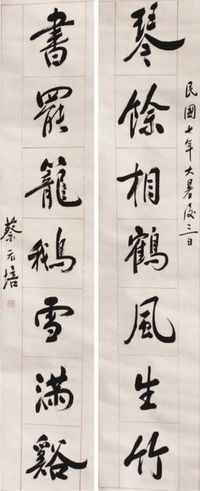 民國七年大暑後三日
琴餘相鶴風生竹
書罷籠鵝雪滿谿
蔡元培